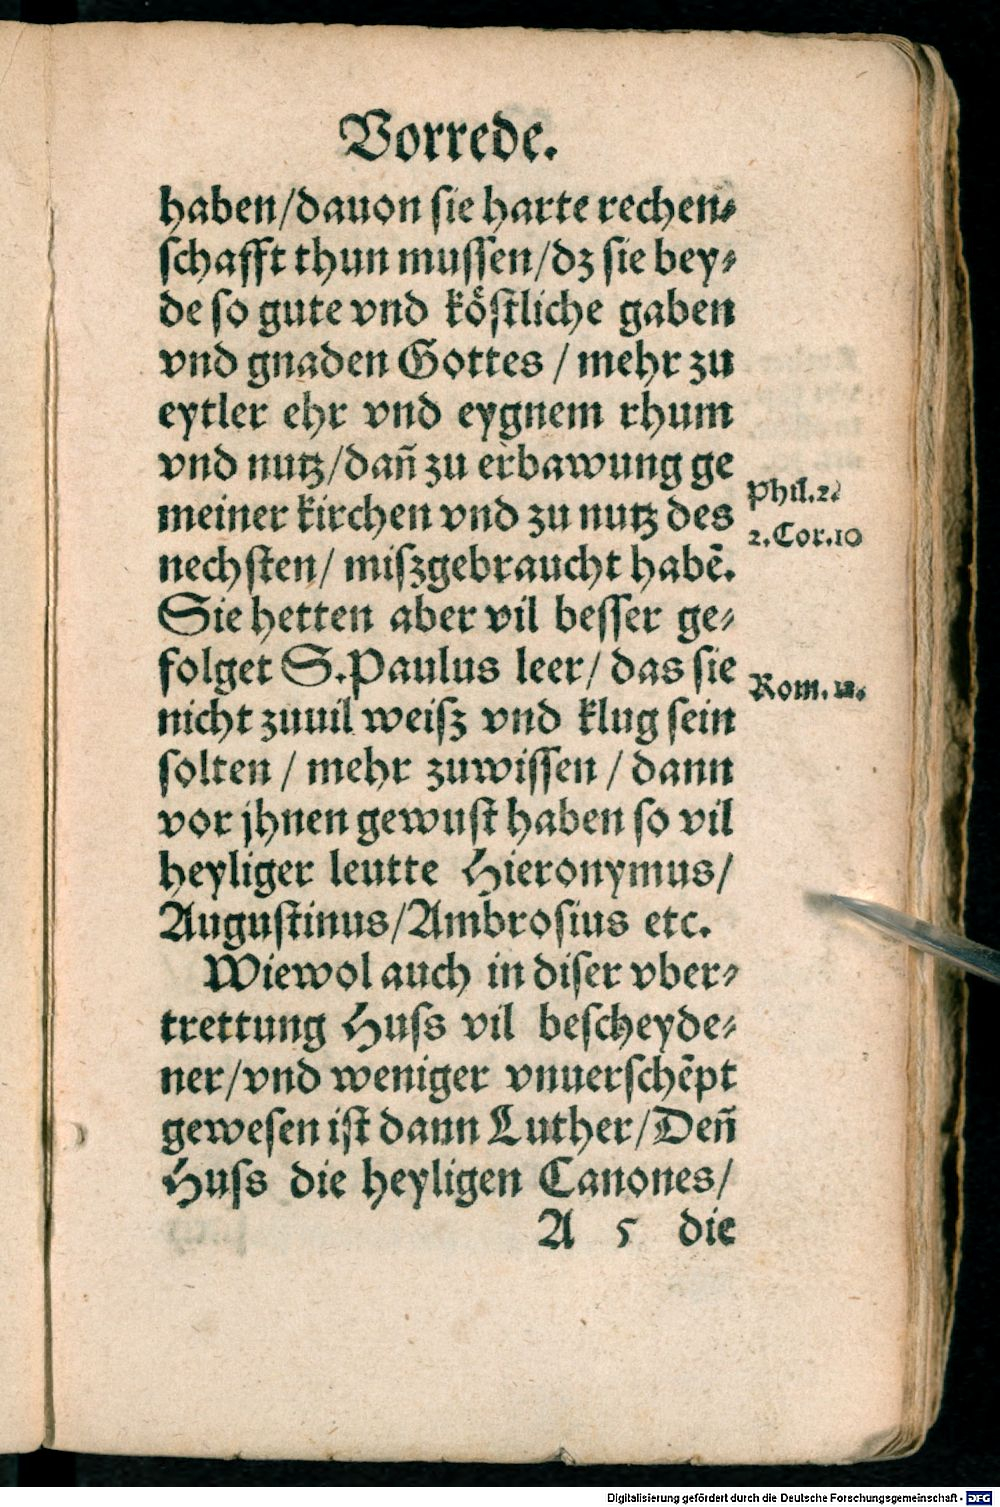 Vorrede.
haben/dauon sie harte rechen⸗
schafft thun mussen/dz sie bey⸗
de so gute vnd köstliche gaben
vnd gnaden Gottes / mehr zu
eytler ehr vnd eygnem rhum
vnd nutz/dañ zu erbawung ge
Phil.2.
meiner kirchen vnd zu nutz des
2.Cor.10
nechsten/ miszgebraucht habẽ.
Sie hetten aber vil besser ge⸗
folget S.Paulus leer/ das sie
Rom. 12.
nicht zuuil weisz vnd klug sein
solten / mehr zuwissen / dann
vor jhnen gewust haben so vil
heyliger leutte Hieronymus/
Augustinus/Ambrosius etc.
Wiewol auch in diser vber⸗
trettung Huss vil bescheyde⸗
ner/vnd weniger vnuerschẽpt
gewesen ist dann Luther/Deñ
Huss die heyligen Canones/
A 5 die
Digitalisierung gefördert durch die Deutsche Forschungsgemeinschaft - DFG